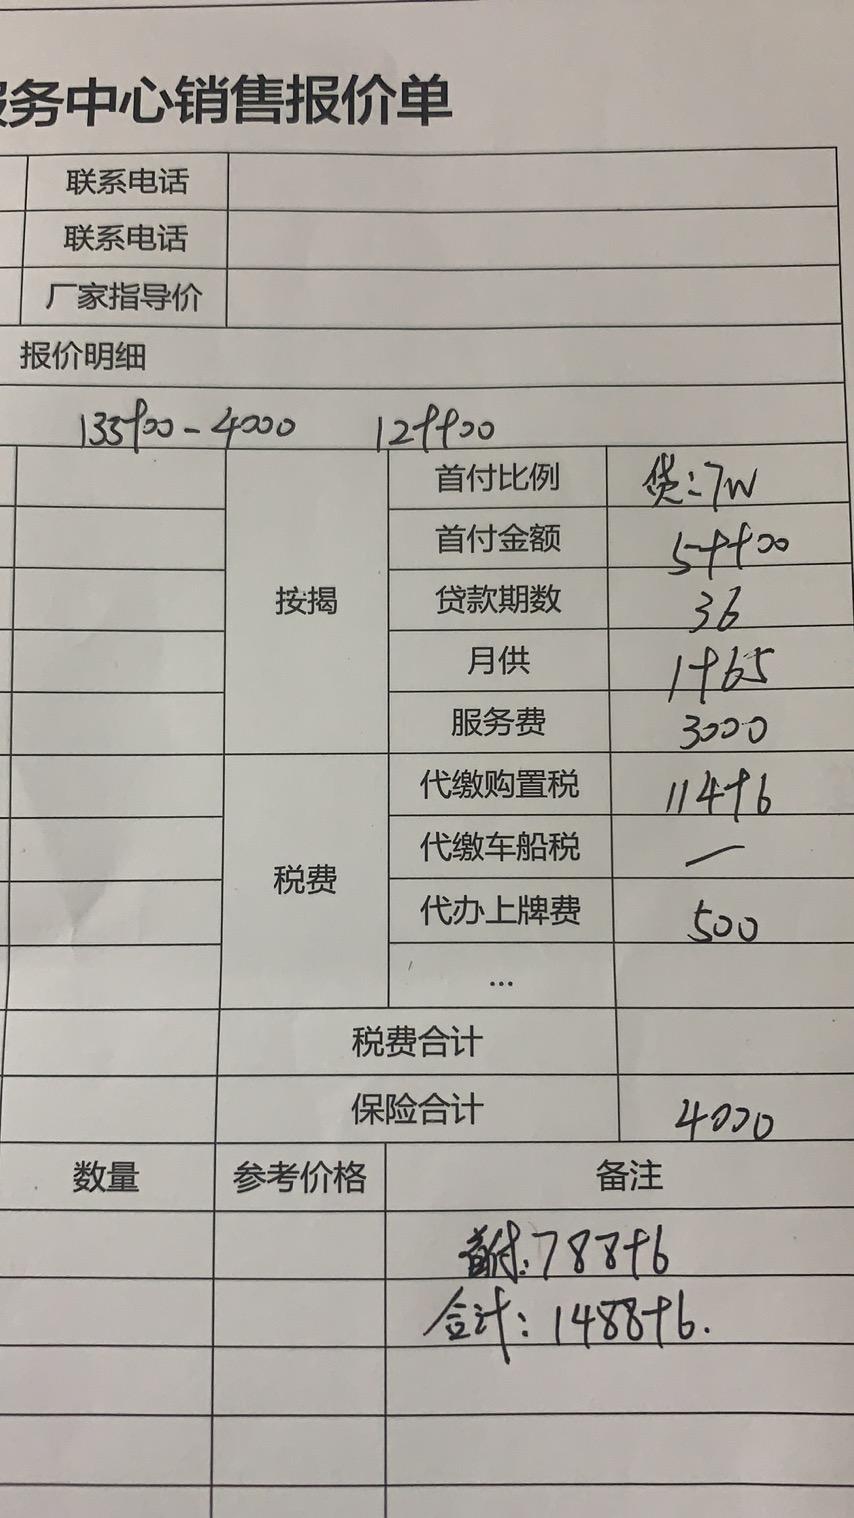 服务中心销售报价单
联系电话
联系电话
厂家指导价
报价明细
133900-4000 129900
按揭
首付比例 贷:7W
首付金额 59900
贷款期数 36
月供 1965
服务费 3000
税费
代缴购置税 11496
代缴车船税 一
代办上牌费 500
...
税费合计
保险合计 4000
数量 参考价格 备注
首付:78896
合计:148896.